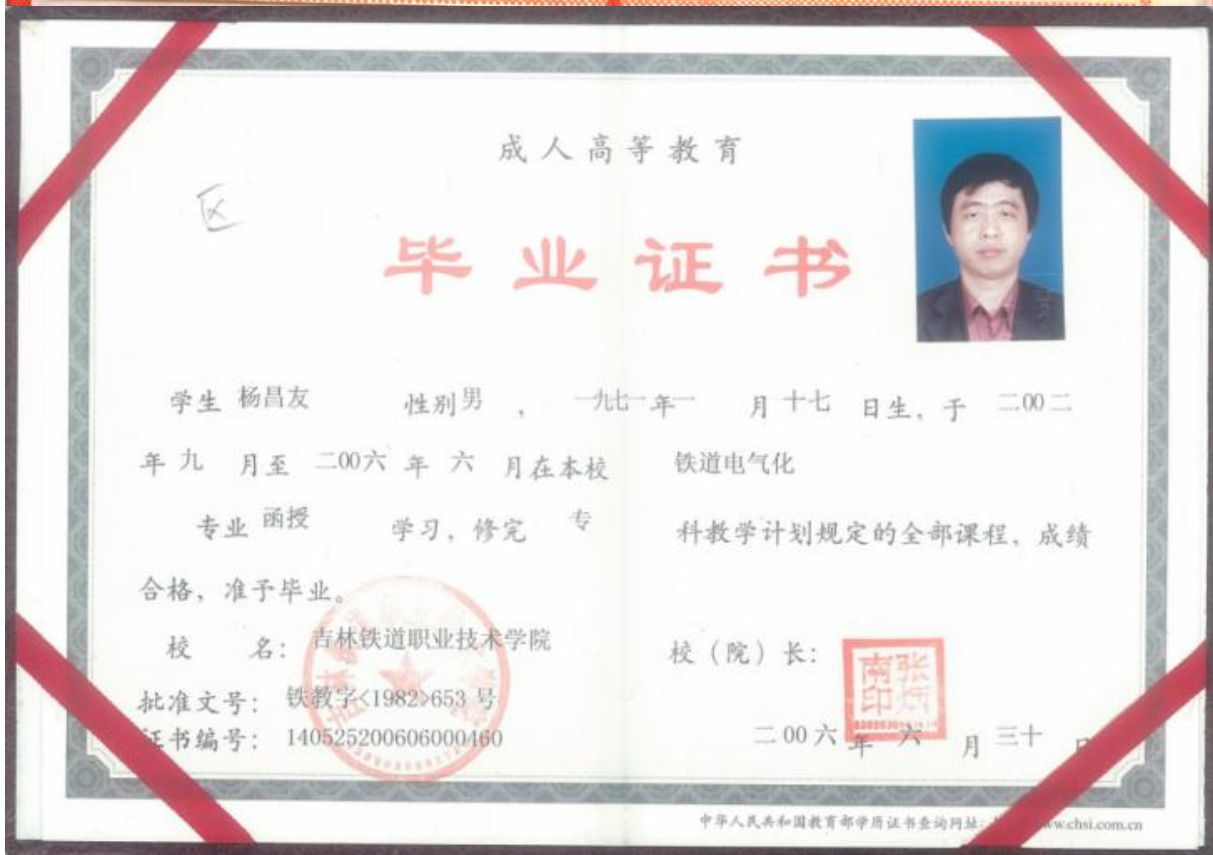 成人高等教育
区
毕业证书
学生 杨昌友 性别 男 , 一九七一 年 一 月 十七 日生, 于 二00二
年 九 月至 二00六 年 六 月在本校 铁道电气化
专业 函授 学习, 修完 专 科教学计划规定的全部课程, 成绩
合格, 准予毕业。
校 名: 吉林铁道职业技术学院 校(院)长:
张炳南印
批准文号: 铁教字<1982>653 号
证书编号: 140525200606000460 二00六 年 六 月 三十 日
中华人民共和国教育部学历证书查询网址: www.chsi.com.cn